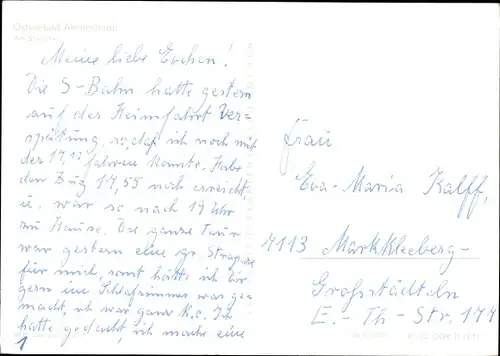 Ostseebad Ahrenshoop
Meine liebe Evchen!
Die S-Bahn hatte gestern
auf der Heimfahrt Ver-
spätung, so daß ich noch mit
der 17,12 fahren konnte. Habe
den Zug 17,55 noch erreicht
u. war so nach 19 Uhr
zu Hause. Die ganze Tour
war gestern eine gr. Strapaze
für mich, sonst hätte ich Dir
gern im Schlafzimmer was ge-
macht, ich war ganz k.o. Ich
hatte gedacht, ich mache eine
1
Frau
Eva-Maria Kalff,
7113 Markkleeberg-
Großstädteln
E.-Th-Str. 177